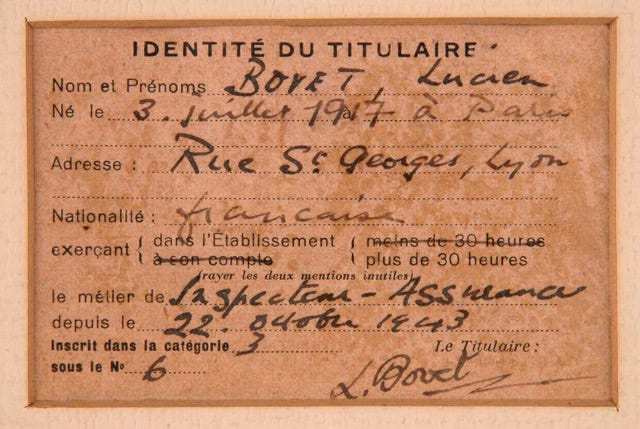 IDENTITÉ DU TITULAIRE
Nom et Prénoms BOVET, Lucien
Né le 3 juillet 1917 à Paris
Adresse : Rue St Georges, Lyon
Nationalité : française
exerçant { dans l'Etablissement { moins de 30 heures
à son compte plus de 30 heures
(rayer les deux mentions inutiles)
le métier de Inspecteur - Assurances
depuis le 22 Octobre 1943
Inscrit dans la catégorie 3 Le Titulaire :
sous le No 6 L. Bovet